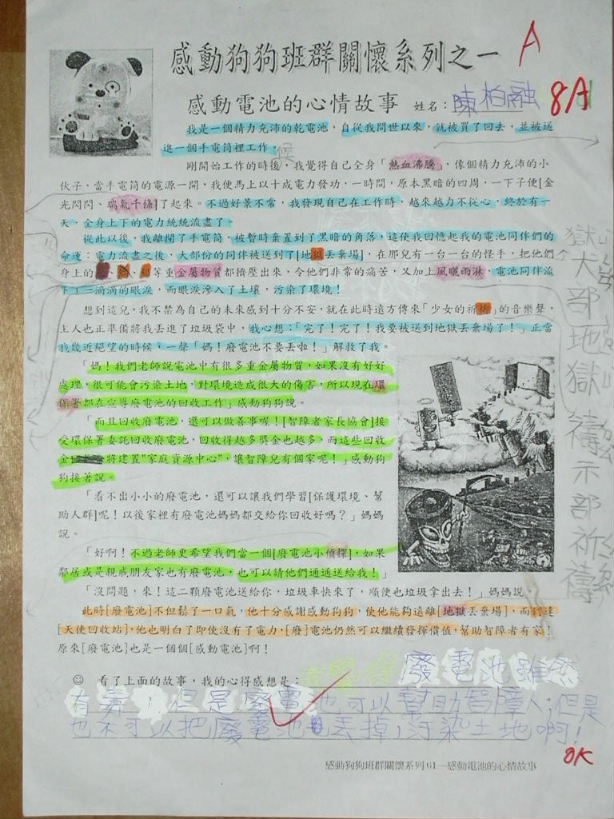 感動狗狗班群關懷系列之一
A
感動電池的心情故事 姓名：陳柏融 8A
我是一個精力充沛的乾電池，自從我問世以來，就被買了回去，並被送
進一個手電筒裡工作。
候
剛開始工作的時後，我覺得自己全身「熱血沸騰」，像個精力充沛的小
伙子，當手電筒的電源一開，我便馬上以十成電力發功，一時間，原本黑暗的四周，一下子便[金
光閃閃、瑞氣千條]了起來。不過好景不常，我發現自己在工作時，越來越力不從心，終於有一
天，全身上下的電力統統流盡了。
從此以後，我離開了手電筒，被暫時棄置到了黑暗的角落，這使我回憶起我的電池同胞們的
命運：電力流盡之後，大部份的同胞被送到了[地獄丟棄場]，在那兒有一台一台的怪手，把他們
身上的、等重金屬物質都擠壓出來，令他們非常的痛苦，又加上風曬雨淋，電池同伴流
下了一滴滴的眼淚，而眼淚滲入了土壤，污染了環境！
想到這兒，我不禁為自己的未來感到十分不安，就在此時遠方傳來「少女的祈禱」的音樂聲，
主人也正準備將我丟進了垃圾袋中，我心想：「完了！完了！我要被送到地獄丟棄場了！」，正當
我幾近絕望的時候，一聲「媽！廢電池不要丟啦！」解救了我。
「媽！我們老師說電池中有很多重金屬物質，如果沒有好好
處理，很可能會污染土地，對環境造成很大的傷害，所以現在環
保署都在宣導廢電池的回收工作」感動狗狗說。
「而且回收廢電池，還可以做善事喔！[智障者家長協會]接
受環保署委託回收廢電池，回收得越多獎金也越多，而這些回收
金將建置"家庭資源中心"，讓智障兒有個家呢！」感動狗
狗接著說。
「看不出小小的廢電池，還可以讓我們學習[保護環境、幫
助人群]呢！以後家裡有廢電池媽媽都交給你回收好嗎？」媽媽
說。
「好啊！不過老師更希望我們當一個[廢電池小偵探]，如果
鄰居或是親戚朋友家也有廢電池，也可以請他們通通送給我！」
「沒問題，來！這二顆廢電池送給你，垃圾車快來了，順便也垃圾拿出去！」媽媽說。
此時[廢電池]不但鬆了一口氣，他十分感謝感動狗狗，使他能夠遠離[地獄丟棄場]，而
[天使回收站]，他也明白了即使沒有了電力，[廢]電池仍然可以繼續發揮價值，幫助智障者有家！
原來[廢電池]也是一個個[感動電池]啊！
☺ 看了上面的故事，我的心得感想是：廢電池雖然
有但是廢電池可以幫助智障人；但是
也不可以把廢電池丟掉，汙染土地啊！
OK
感動狗狗班群關懷系列 61—感動電池的心情故事
獄犬部地獄
禱示部祈禱